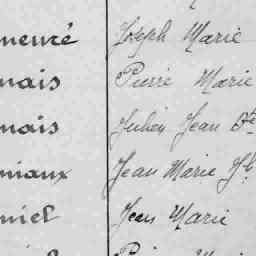 meuré Joseph Marie
nais Pierre Marie
nais Julien Jean Bte
niaux Jean Marie Jh
niel Jean Marie